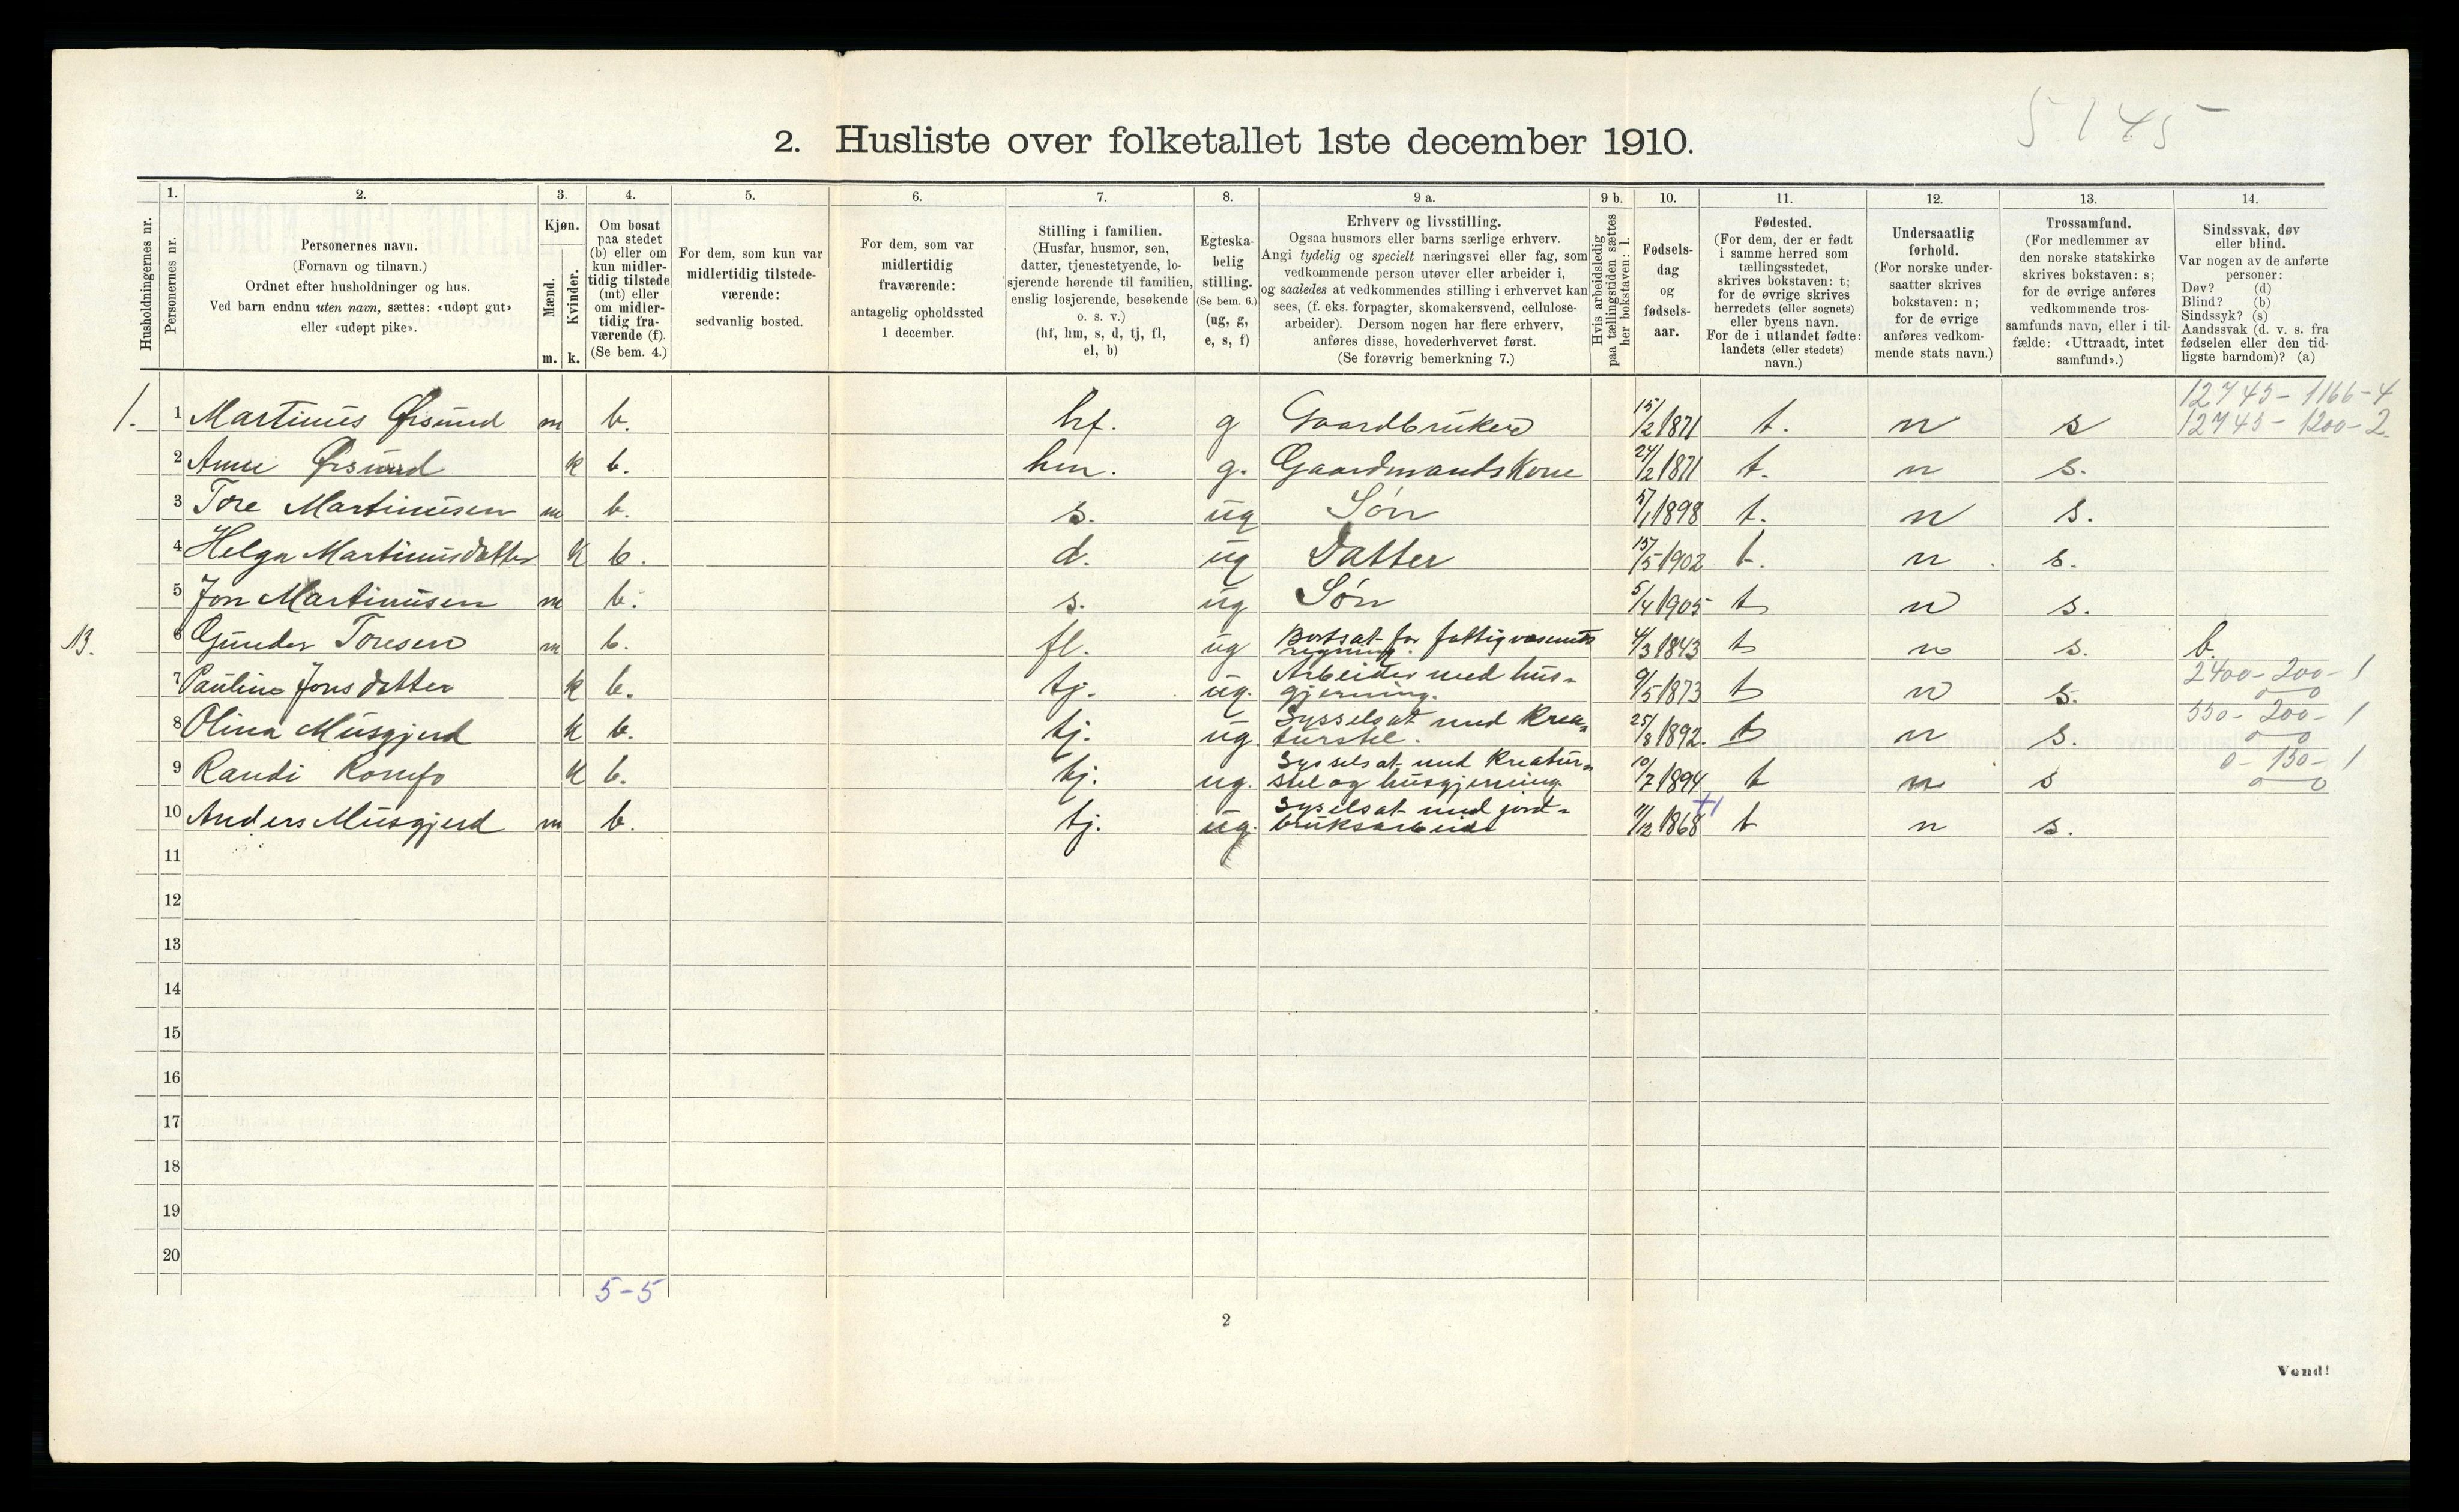 5145
2. Husliste over folketallet 1ste december 1910.
Husholdningernes nr.
1.
Personernes nr.
2.
Personernes navn.
(Fornavn og tilnavn.)
Ordnet efter husholdninger og hus.
Ved barn endnu uten navn, sættes: «udøpt gut»
eller «udøpt pike».
3.
Kjøn.
Mænd.
Kvinder.
m. k.
4.
Om bosat
paa stedet
(b) eller om
kun midler-
tidig tilstede
(mt) eller
om midler-
tidig fra-
værende (f).
(Se bem. 4.)
5.
For dem, som kun var
midlertidig tilstede-
værende:
sedvanlig bosted.
6.
For dem, som var
midlertidig
fraværende:
antagelig opholdssted
1 december.
7.
Stilling i familien.
(Husfar, husmor, søn,
datter, tjenestetyende, lo-
sjerende hørende til familien,
enslig losjerende, besøkende
o. s. v.)
(hf, hm, s, d, tj, fl,
el, b)
8.
Egteska-
belig
stilling.
(Se bem. 6.)
(ug, g,
e, s, f)
9 a.
Erhverv og livsstilling.
Ogsaa husmors eller barns særlige erhverv.
Angi tydelig og specielt næringsvei eller fag, som
vedkommende person utøver eller arbeider i,
og saaledes at vedkommendes stilling i erhvervet kan
sees, (f. eks. forpagter, skomakersvend, cellulose-
arbeider). Dersom nogen har flere erhverv,
anføres disse, hovederhvervet først.
(Se forøvrig bemerkning 7.)
9 b.
Hvis arbeidsledig
paa tællingstiden sættes
her bokstaven: l.
10.
Fødsels-
dag
og
fødsels-
aar.
11.
Fødested.
(For dem, der er født
i samme herred som
tællingsstedet,
skrives bokstaven: t;
for de øvrige skrives
herredets (eller sognets)
eller byens navn.
For de i utlandet fødte:
landets (eller stedets)
navn.)
12.
Undersaatlig
forhold.
(For norske under-
saatter skrives
bokstaven: n;
for de øvrige
anføres vedkom-
mende stats navn.)
13.
Trossamfund.
(For medlemmer av
den norske statskirke
skrives bokstaven: s;
for de øvrige anføres
vedkommende tros-
samfunds navn, eller i til-
fælde: «Uttraadt, intet
samfund».)
14.
Sindssvak, døv
eller blind.
Var nogen av de anførte
personer:
Døv? (d)
Blind? (b)
Sindssyk? (s)
Aandssvak (d. v. s. fra
fødselen eller den tid-
ligste barndom)? (a)
12745-1166-4
1. 1 Martinus Øksund m b. hf. g Gaardbruker 15/2 1871 t. n s 12745-1200-2
2 Anne Øksund k b. hm. g. Gaardmandskone 24/2 1871 t. n s.
3 Tore Martinusen m b. s. ug Søn 5/1 1898 t. n s.
4 Helga Martinusdatter k b. d. ug Datter 15/5 1902 t. n s.
5 Jon Martinusen m b. s. ug Søn 5/4 1905 t n s.
13. 6 Gunder Toresen m b. fl. ug Bortsat for fattigvæsenets
regning. 4/3 1843 t n s. b.
7 Pauline Jonsdatter k b. tj. ug. Arbeider med hus-
gjerning. 9/5 1873 t n s. 2400-200-1
0 0
8 Olina Musgjerd k b. tj. ug Sysselsat med krea-
turstel. 25/8 1892. t n s. 550-200-1
0 0
9 Randi Romfo k b. tj. ug. Sysselsat med kreatur-
stel og husgjerning. 10/7 1894 t n s 0-150-1
0 0
10 Anders Musgjerd m b. tj. ug. Sysselsat med jord-
bruksarbeide 11/12 1868 +1 t n s.
11
12
13
14
15
16
17
18
19
20
5-5
2
Vend!